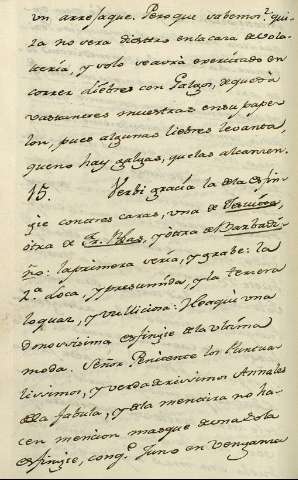 vn arrofaque. Pero que sabemos? qui-
za no sera diestro en la caza de Vola-
teria, y solo se avra exercitado en
correr liebres con Galgos, de que dà
bastantes muestras en su pape-
lon, pues algunas liebres levanta,
que no hay galgos, que las alcanzen.
15. Verbi gracia la de la esfin-
gie con tres caras, una de
otra de Fr. Blas, y otra de Barbadi-
ño: la primera seria, y grabe: la
2.ª loca, y presumida, y la tercera
loquaz, y bulliciosa: He aqui una
donosissima esfingie de la ultima
moda. Señor Penitente los Puntua-
lissimos, y verdaderissimos Annales
de la fabula, y de la mentira no ha-
cen mencion mas que de una sola
esfingie, con q.ᵉ Juno en venganza